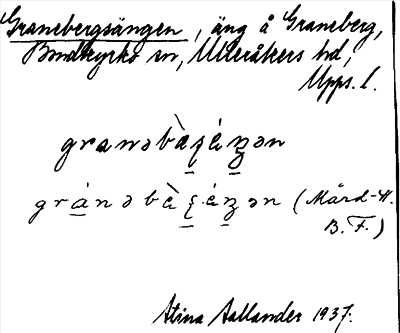 Granebergsängen, äng å Graneberg,
Bondkyrko sn, Ulleråkers hd,
Upps. l.
granəbæ̀ʂéŋən
gránəbæ̀ʂéŋən (Mård-H.
B. F.)
Stina Aallander 1937.